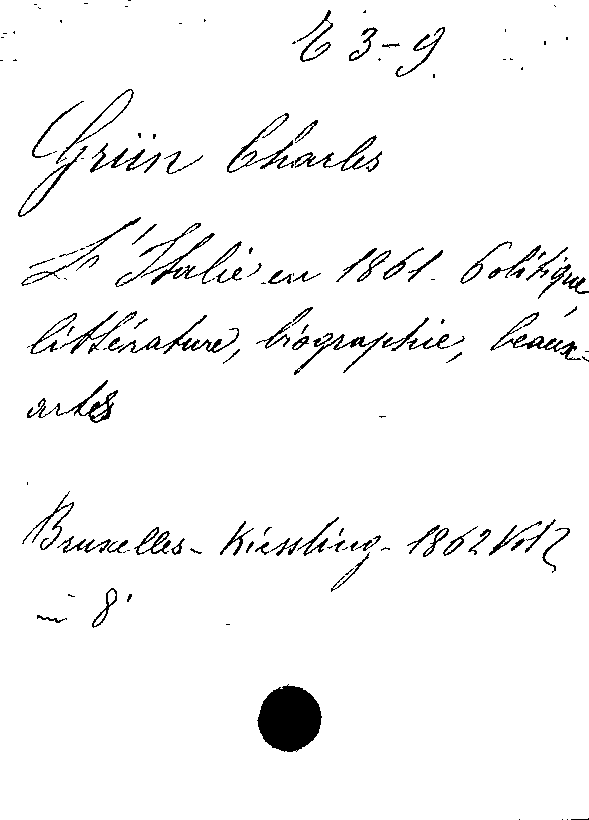 E 3-9
Grün Charles
L'Italie en 1861. Politique,
littérature, biographie, beaux-
artes
Bruxelles - Kiessling - 1862 Vol 2
in 8°